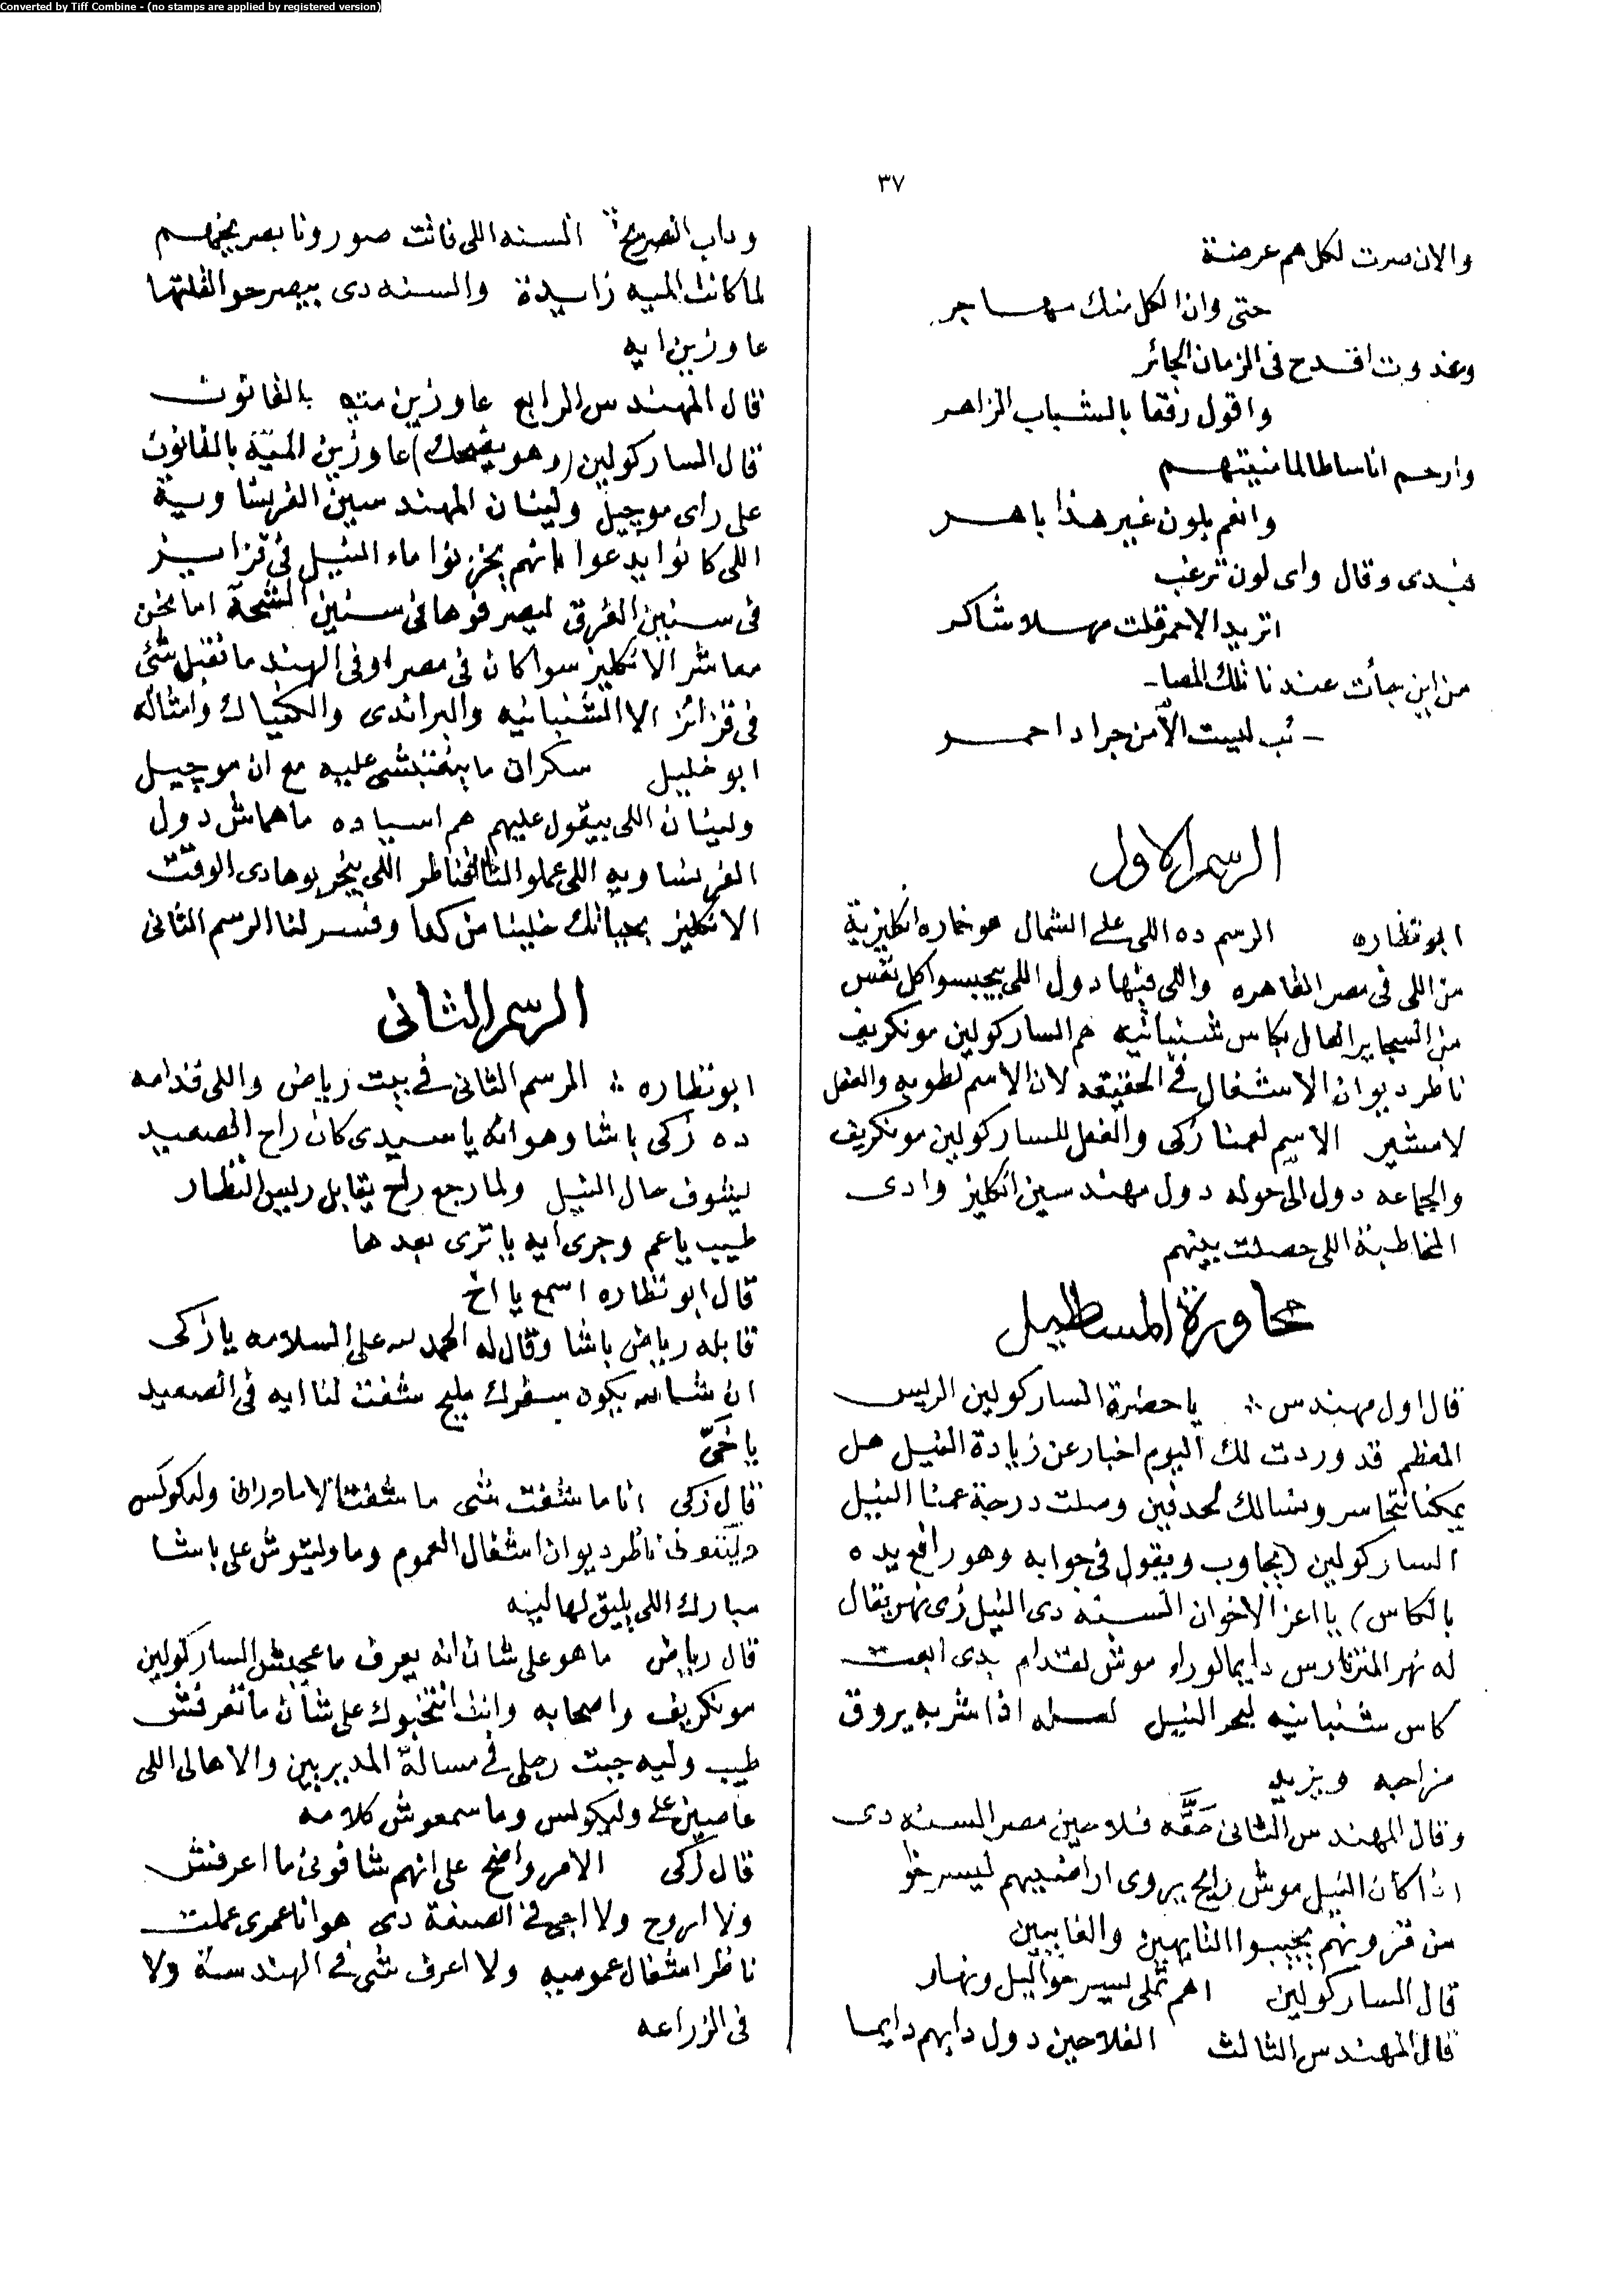 Converted by Tiff Combine - (no stamps are applied by registered version)
٣٧
والان صرت لكل هم عرضة
حتى وان الكل منك مهاجر
وغدوت اقدح فى الزمان الجائر
واقول رفقا بالشباب الزاهر
وارحم اناسا طالما منيتهم
وانعم بلون غير هذا باهر
فبدى وقال واى لون ترغب
اتريد الاحمر قلت مهلا شاكر
من اين جأت عندنا تلك المصا-
- ئب ليست الا من جراد احمر
الرسم الاول
ابو نظاره الرسم ده اللى على الشمال هو خماره انكليزية
من اللى فى مصر القاهره واللى فيها دول اللى بيحبسوا كل نفس
من السجاير العال بكاس شنبانيه هم السار كولين مونكريف
ناظر ديوان الاشغال فى الحقيقه لان الاسم لطوبه والفعل
لامشير الاسم لعمنا زكى والفعل للسار كولين مونكريف
والجماعه دول الى حوله دول مهندسين انكليز وادى
المخاطبة اللى حصلت بينهم
محاورة المساطيل
قال اول مهندس ÷ يا حضرة السار كولين الريس
المعظم قد وردت لك اليوم اخبار عن زيادة النيل هل
يمكنا نتجاسر ونسالك لحد فين وصلت درجة عمنا النيل
السار كولين (يجاوب ويقول فى جوابه وهو رافع يده
بالكاس) يا اعز الاخوان السنه دى النيل زى نهر يقال
له نهر المتتارس دايما لوراء موش لقدام بدى ابعت
كاس شنبانيه لبحر النيل لعله اذا شربه يروق
مزاجه ويزيد
وقال المهندس الثانى حقه فلاحين مصر السنه دى
اذا كان النيل موش رايح يروى اراضيهم ليسرخوا
من قرونهم يجيبوا التايهين والغايبين
قال السار كولين اهم تملى بيسرخوا ليل ونهار
قال المهندس الثالث الفلاحين دول دابهم دايما
وداب الصريخ السنه اللى فاتت صورونا بصريخهم
لما كانت الميه زايدة والسنه دى بيصرخوا لقلتها
عاوزين ايه
قال المهندس الرابع عاوزين ميه بالقانون
قال السار كولين (وهو يضحك) عاوزين الميه بالقانون
على راى موجيل ولينان المهندسين الفرنساوية
اللى كانوا يدعوا بانهم يخزنوا ماء النيل فى قزايز
فى سنين الغرق ليصرفوها فى سنين الشحة اما نحن
معاشر الانكليز سوا كان فى مصر او فى الهند ما نقبل شئ
فى قزائز الا الشنبانيه والبراندى والكنياك وامثاله
ابو خليل سكران ما ينعتبشى عليه مع ان موجيل
ولينان اللى بيقول عليهم هم اسياده ماهماش دول
الفرنساويه اللى عملوا لنا القناطر اللى بيخربوها دى الوقت
الانكليز بحياتك خلينا من كدا وفسر لنا الرسم الثانى
الرسم الثانى
ابو نظاره ÷ الرسم الثانى فى بيت رياض واللى قدامه
ده زكى باشا وهو انه يا سيدى كان راح الصعيد
يشوف حال النيل ولما رجع راح يقابل رييس النظار
طيب يا عم وجرى ايه يا ترى بعدها
قال ابو نظاره اسمع يا اخ
قابله رياض باشا وقال له الحمد لله على السلامه يا زكى
ان شالله يكون سفرك مليح شفت لنا ايه فى الصعيد
يا خىّ
قال زكى انا ما شفت شى ما شفت الا مادران وليكوكس
ليتنى ناظر ديوان اشغال العموم وما وليتوش على باشا
مبارك اللى يليق لها لينه
قال رياض ما هو على شان انه يعرف ما عجبش السار كولين
مونكريف واصحابه وانت انتخبوك على شان ما تعرفش
طيب وليه جبت رجلى فى مسالة المديريين والاهالى اللى
عاصيين على وليكوكس وما سمعوش كلامه
قال زكى الامر واضح على انهم شافونى ما اعرفش
ولا اروح ولا اجى فى الصنعة دى هو انا عمرى عملت
ناظر اشغال عموميه ولا اعرف شى فى الهندسة ولا
فى الزراعه